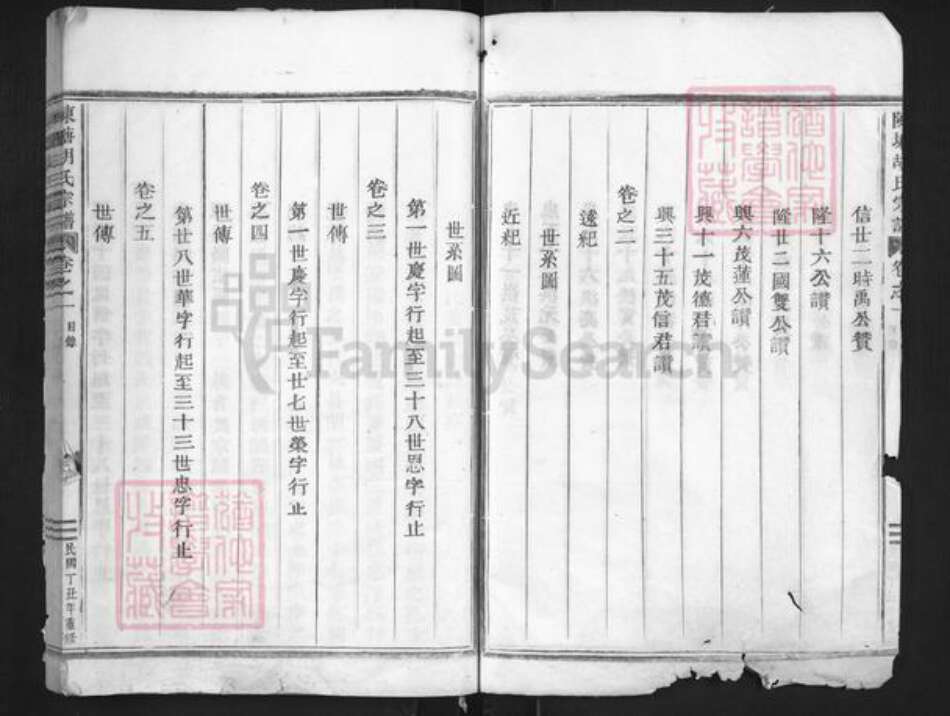 信廿二時禹公贊
隆十六公讃
隆廿二國雙公讃
興六茂蓮公讃
興十一茂德君讃
興三十五茂信君讃
卷之二
遠紀
世系圖
近紀
世系圖
第一世慶字行起至三十八世恩字行止
卷之三
世傳
第一世慶字行起至廿七世榮字行止
卷之四
世傳
第廿八世華字行起至三十三世忠字行止
卷之五
世傳
胡氏宗譜
卷之一
目錄
民國丁丑年重修
FamilySearch